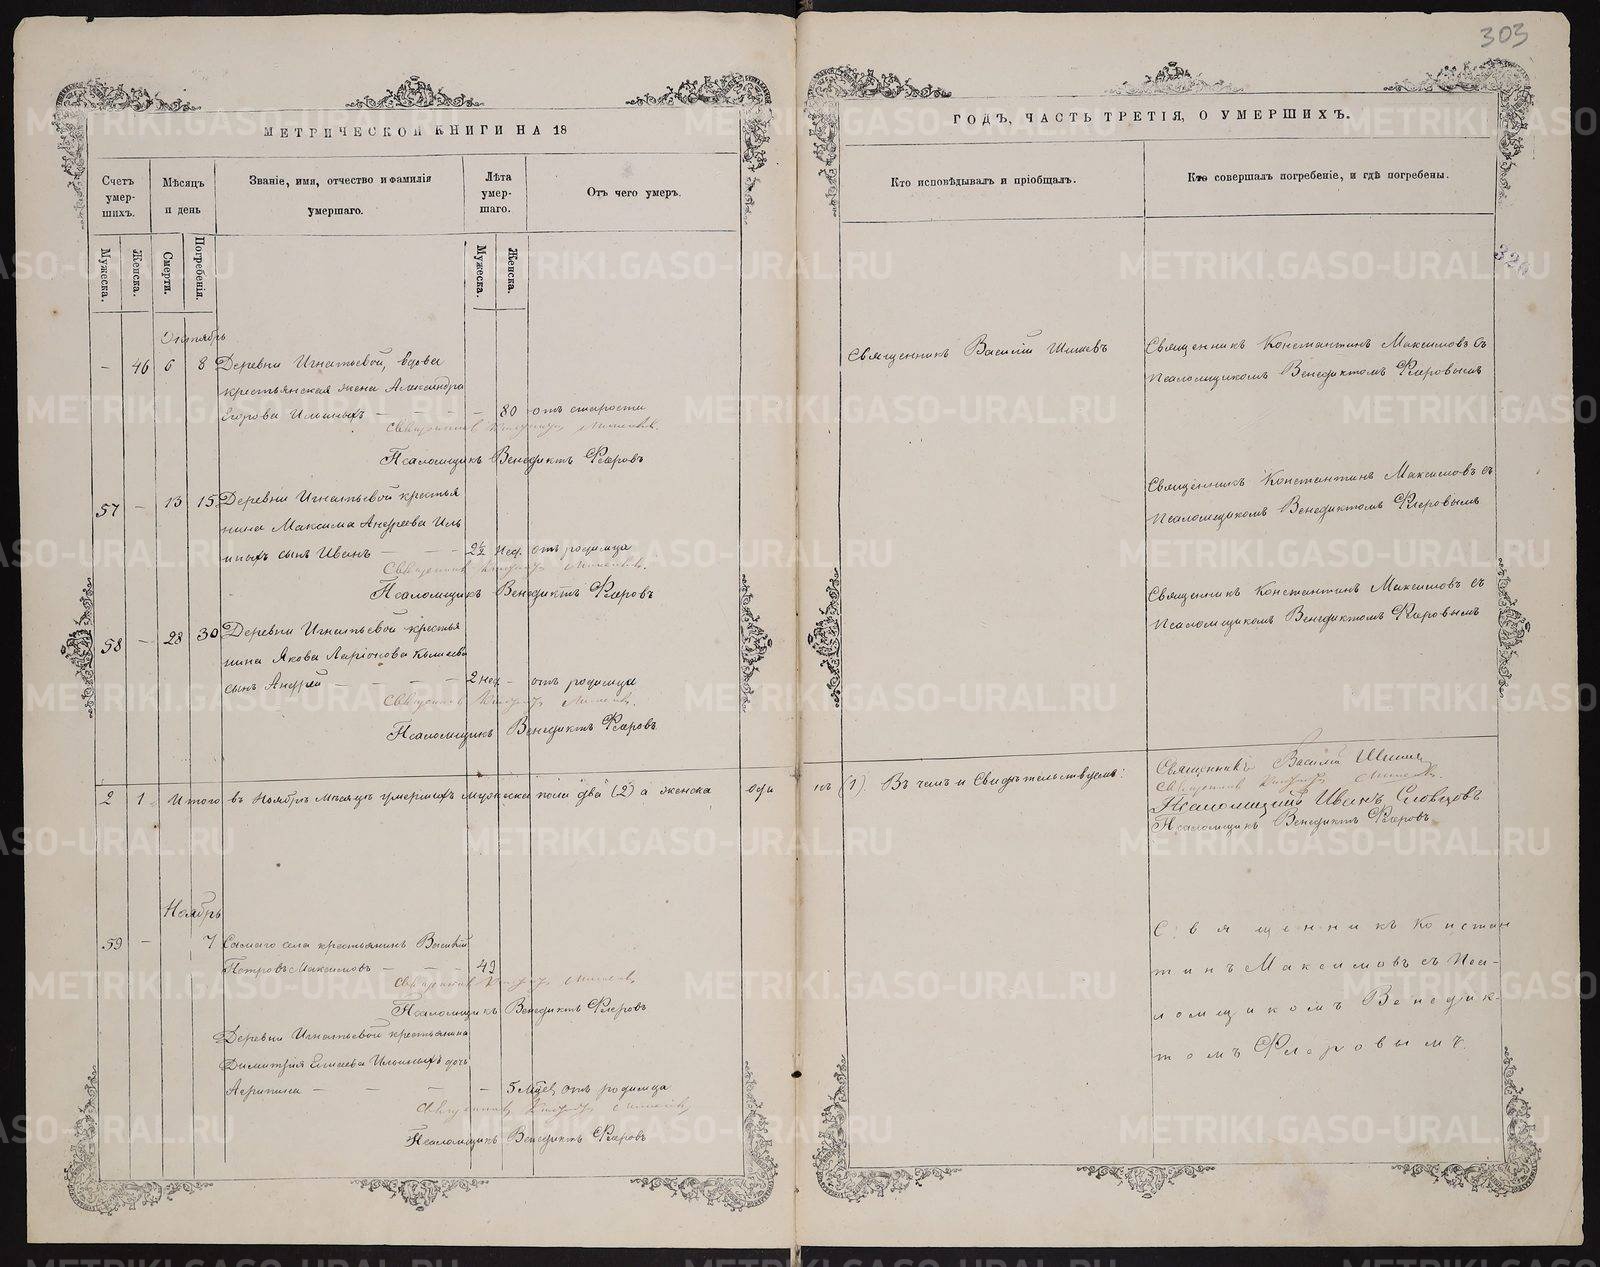 303
МЕТРИЧЕСКОЙ КНИГИ НА 18
ГОДЪ, ЧАСТЬ ТРЕТІЯ, О УМЕРШИХЪ.
Счетъ умер-шихъ.
Мѣсяцъ и день
Званіе, имя, отчество и фамилія умершаго.
Лѣта умер-шаго.
Отъ чего умеръ.
Кто исповѣдывалъ и пріобщалъ.
Кто совершалъ погребеніе, и гдѣ погребены.
Мужеска.
Женска.
Смерти.
Погребенія.
Мужеска.
Женска.
326
Октябрь
- 46 6 8 Деревни Игнатьевой, вдова
крестьянская жена Александра
Егорова Ильиныхъ - - - - 80 отъ старости
Священникъ
Псаломщикъ Венедиктъ Флёровъ
Священникъ Василій Шишевъ
Священникъ Константинъ Максимовъ съ
Псаломщикомъ Венедиктомъ Флёровымъ
57 - 13 15 Деревни Игнатьевой крестья
нина Максима Андреева Иль
иныхъ сынъ Иванъ - - - 2½ нед. отъ родимца
Священникъ
Псаломщикъ Венедиктъ Флёровъ
Священникъ Константинъ Максимовъ съ
Псаломщикомъ Венедиктомъ Флёровымъ
58 - 28 30 Деревни Игнатьевой крестья
нина Якова Ларіонова
сынъ Андрей - - - - 2 нед - отъ родимца
Священникъ
Псаломщикъ Венедиктъ Флёровъ
Священникъ Константинъ Максимовъ съ
Псаломщикомъ Венедиктомъ Флёровымъ
2 1 Итого въ Ноябрѣ мѣсяцѣ умершихъ мужеска пола два (2) а женска одинъ (1). Въ чемъ и Свидѣтельствуемъ:
Священникъ Василій
Священникъ
Псаломщикъ Иванъ Словцовъ
Псаломщикъ Венедиктъ Флёровъ
Ноябрь
59 - 7 Самаго села крестьянинъ Василій
Петровъ Максимовъ - - - 49
Священникъ
Псаломщикъ Венедиктъ Флёровъ
Священникъ Констан
тинъ Максимовъ съ Пса-
ломщикомъ Венедик-
томъ Флеровымъ
Деревни Игнатьевой крестьянина
Димитрія Елисеева Ильиныхъ дочь
Агрипина - - - - 5 отъ родимца
Священникъ
Псаломщикъ Венедиктъ Флёровъ
METRIKI.GASO-URAL.RU